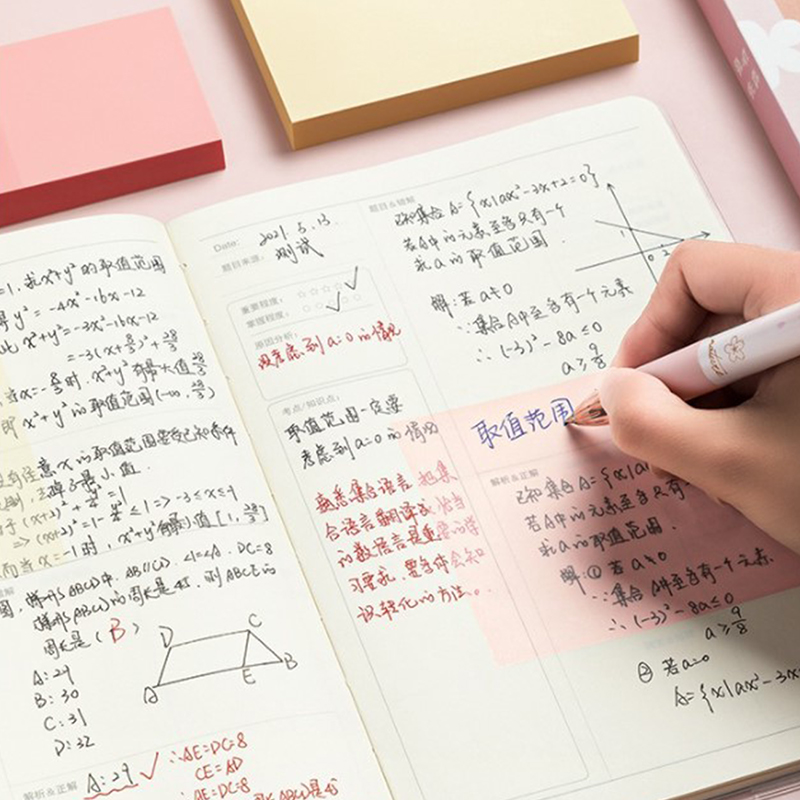 =1. 求x²+y²的取值范围
y²=-4x²-16x-12
x²+y²=-3x²-16x-12
=-3(x+8/3)²+28/3
当x=-8/3时. x²+y²有最大值28/3
即x²+y²的取值范围(-∞, 28/3]
注意x的取值范围要受已知条件
(x+2)²+y²/4=1
=>(x+2)²=1-y²/4≤1=>-3≤x≤-1
而当x=-1时, x²+y²有最小值1[1, 28/3]
梯形ABCD中. AB//CD. DC=8
梯形ABCD的周长是
周长是(B)
A:29
B:30
C:31
D:32
D
C
A
E
B
解析&正解
A:29
∴AE=DC=8
CE=AD
∴AE=DC=8
Date:
2021.5.13.
题目来源:
测试
重要程度:
掌握程度:
原因分析:
没考虑到a=0的情况
考点/知识点:
取值范围一定要
考虑到a=0的情况
熟悉集合语言.把集
合语言翻译成恰当
的数语言是重要的学
习要求,要去体会知
识转化的方法。
题目&错解
已知集合A={x|ax²-3x+2=0}
若A中的元素至多只有一个
求a的取值范围.
1
0
2
解:若a≠0
∵集合A中至多有一个元素
∴(-3)²-8a≤0
a≥9/8
取值范围
解析&正解
已知集合A={x|a
若A中的元素至多只有一
求a的取值范围.
解:①若a≠0
∵集合A中至多有一个元素.
∴(-3)²-8a≤0
a≥9/8
②若a=0
A={x|ax²-3x